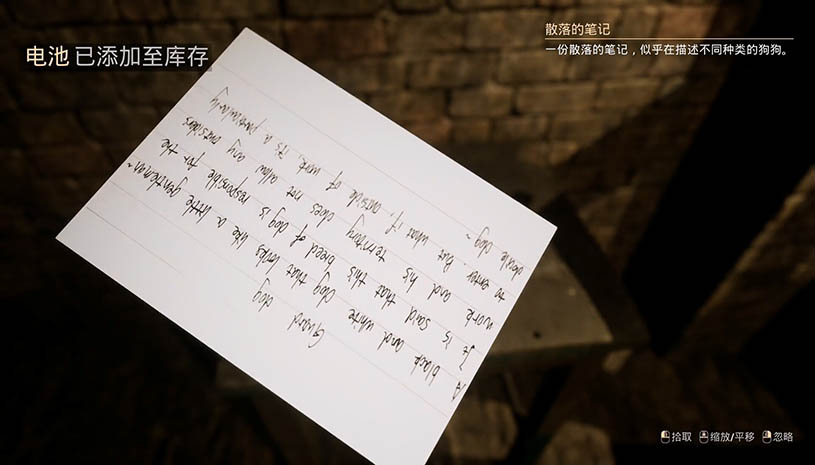 电池 已添加至库存
散落的笔记
一份散落的笔记，似乎在描述不同种类的狗狗。
Guard dog
A black and white dog that looks like a little gentleman~
It is said that this breed of dog is responsible for the
work and his territory does not allow any outsiders
to enter. But what if, outside of work, it's a particularly
docile dog~
拾取 缩放/平移 忽略